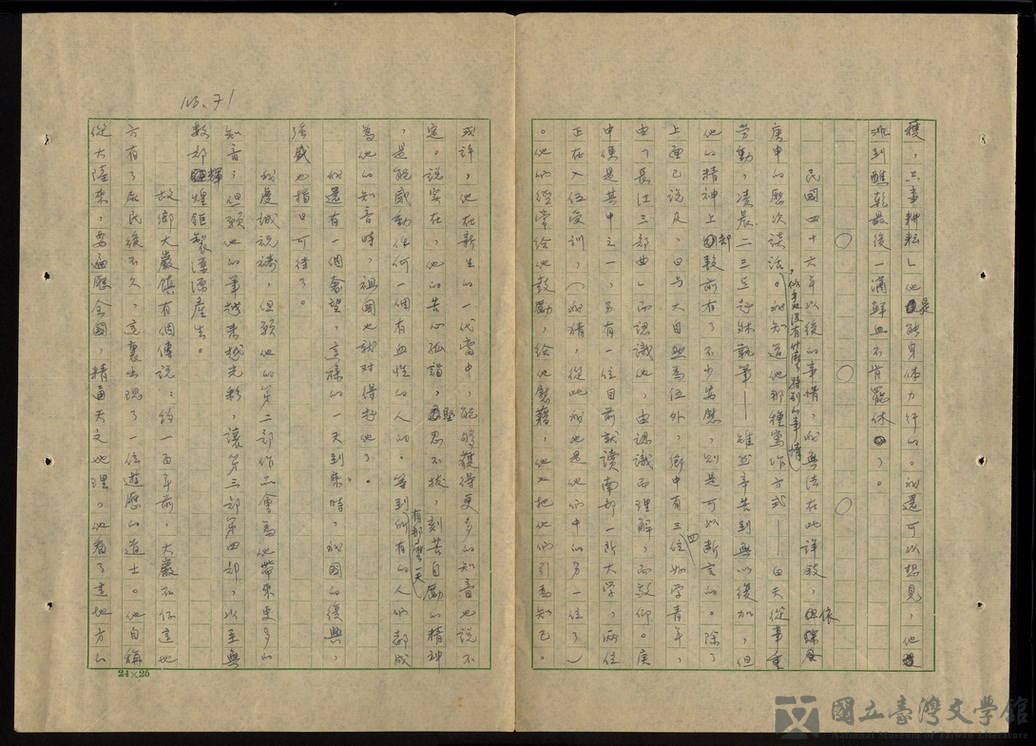 穫，只事耕耘」他是能身体力行的。我還可以想見，他
流到蘸乾最後一滴鮮血不肯罷休了。
○ ○ ○
民國四十六年以後的事情，我無法在此詳敘，但依
庚申的歷次談話，似乎也沒有什麼特別的事情。我知道他那種寫作方式——白天從事重
勞動，凌晨二三點起床執筆——雖然辛苦到無以復加，但
他的精神上卻較前有了不少安慰，則是可以斷言的。除了
上面已說及，日與大自然為伍外，鄉中有三四位好學青年，
由「長江三部曲」而認識他，由認識而理解，而敬仰。庚
申便是其中之一，另有一位目前就讀南部一所大學，兩位
正在入伍受訓，（我猜，從此我也是他們中的另一位了）
。他們經常給他鼓勵，給他慰藉，他也把他們引為知己。
或許，他在新生的一代當中，能夠獲得更多的知音也說不
定。說實在，他的苦心孤詣，堅忍不拔，刻苦自勵的精神
，是能感動任何一個有血性的人的。等到有那麼一天所有的人們都成
為他的知音時，祖國也就对得起他了。
我還有一個奢望，這樣的一天到來時，我國的復興，
強盛也指日可待了。
我虔誠祝禱，但願他的第二部作品會為他帶來更多的
知音，但願他的筆越來越光彩，讓第三部第四部，以至無
數部輝煌鉅製源源產生。
故鄉大巖鎮有個傳說：約一百年前，大巖
方有了居民後不久，這裏出現了一位遊歷的道士。他自稱
從大陸來，要遍歷全國，精通天文地理，他看了這地方的
No. 71
24×25
國立臺灣文學館
National Museum of Taiwan Literature